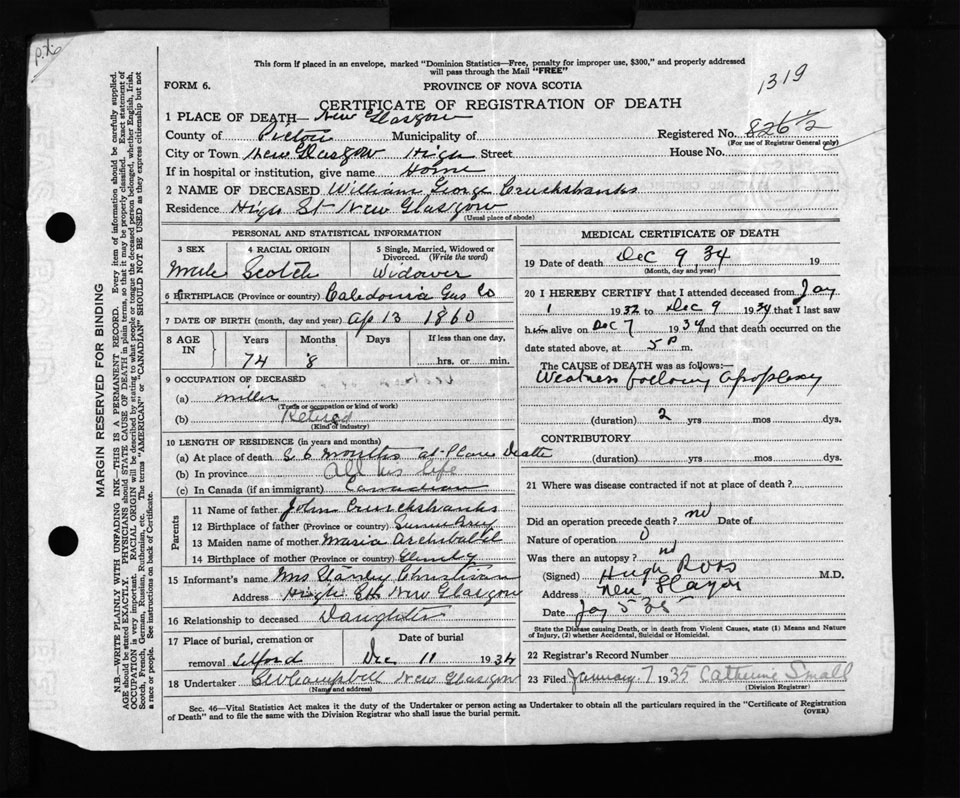 P.X.
This form if placed in an envelope, marked "Dominion Statistics—Free, penalty for improper use, $300," and properly addressed
will pass through the Mail "FREE"
1319
FORM 6.
PROVINCE OF NOVA SCOTIA
CERTIFICATE OF REGISTRATION OF DEATH
1 PLACE OF DEATH— New Glasgow
County of Pictou Municipality of Registered No. 826 1/2
(For use of Registrar General only)
City or Town New Glasgow High Street House No.
If in hospital or institution, give name Home
2 NAME OF DECEASED William George Cruckshanks
Residence High St New Glasgow
(Usual place of abode)
PERSONAL AND STATISTICAL INFORMATION
3 SEX 4 RACIAL ORIGIN 5 Single, Married, Widowed or
Divorced. (Write the word)
Male Scotch Widower
6 BIRTHPLACE (Province or country) Caledonia Gus Co
7 DATE OF BIRTH (month, day and year) Ap 13 1860
8 AGE IN Years Months Days If less than one day,
74 8 hrs. or min.
9 OCCUPATION OF DECEASED
(a) miller
(Trade or occupation or kind of work)
(b) Retired
(Kind of industry)
10 LENGTH OF RESIDENCE (in years and months)
(a) At place of death 6 months at Place Death
(b) In province All his life
(c) In Canada (if an immigrant) Canadian
Parents
11 Name of father John Cruckshanks
12 Birthplace of father (Province or country)
13 Maiden name of mother Maria Archibald
14 Birthplace of mother (Province or country)
15 Informant's name Mrs Stanley Christian
Address High St New Glasgow
16 Relationship to deceased Daughter
17 Place of burial, cremation or Date of burial
removal Telford Dec 11 1934
18 Undertaker Campbell New Glasgow
(Name and address)
MEDICAL CERTIFICATE OF DEATH
19 Date of death Dec 9 34 19
(Month, day and year)
20 I HEREBY CERTIFY that I attended deceased from Jay
1 1932 to Dec 9 1934 that I last saw
him alive on Dec 7 1934 and that death occurred on the
date stated above, at 5 P m.
The CAUSE OF DEATH was as follows:—
Weakness following apoplexy
(duration) 2 yrs mos dys.
CONTRIBUTORY
(duration) yrs mos dys.
21 Where was disease contracted if not at place of death?
Did an operation precede death? no Date of
Nature of operation 0
Was there an autopsy? no
(Signed) Hugh Ross M.D.
Address New Glasgow
Date Jay 5 35
State the Disease causing Death, or in death from Violent Causes, state (1) Means and Nature
of Injury, (2) whether Accidental, Suicidal or Homicidal.
22 Registrar's Record Number
23 Filed January 7 1935 Catherine Small
(Division Registrar)
Sec. 46—Vital Statistics Act makes it the duty of the Undertaker or person acting as Undertaker to obtain all the particulars required in the "Certificate of Registration
of Death" and to file the same with the Division Registrar who shall issue the burial permit.
(OVER)
MARGIN RESERVED FOR BINDING
N.B.—WRITE PLAINLY WITH UNFADING INK—THIS IS A PERMANENT RECORD. Every item of information should be carefully supplied.
AGE should be stated EXACTLY. PHYSICIANS should STATE CAUSE OF DEATH in plain terms, so that it may be properly classified. Exact statement of
OCCUPATION is very important. RACIAL ORIGIN will be described by stating to what people or tongue the deceased person belonged, whether English, Irish,
Scotch, French, German, Russian, Ruthenian, etc. The terms "AMERICAN" or "CANADIAN" SHOULD NOT BE USED as they express citizenship but not
a race or people. See instructions on back of Certificate.